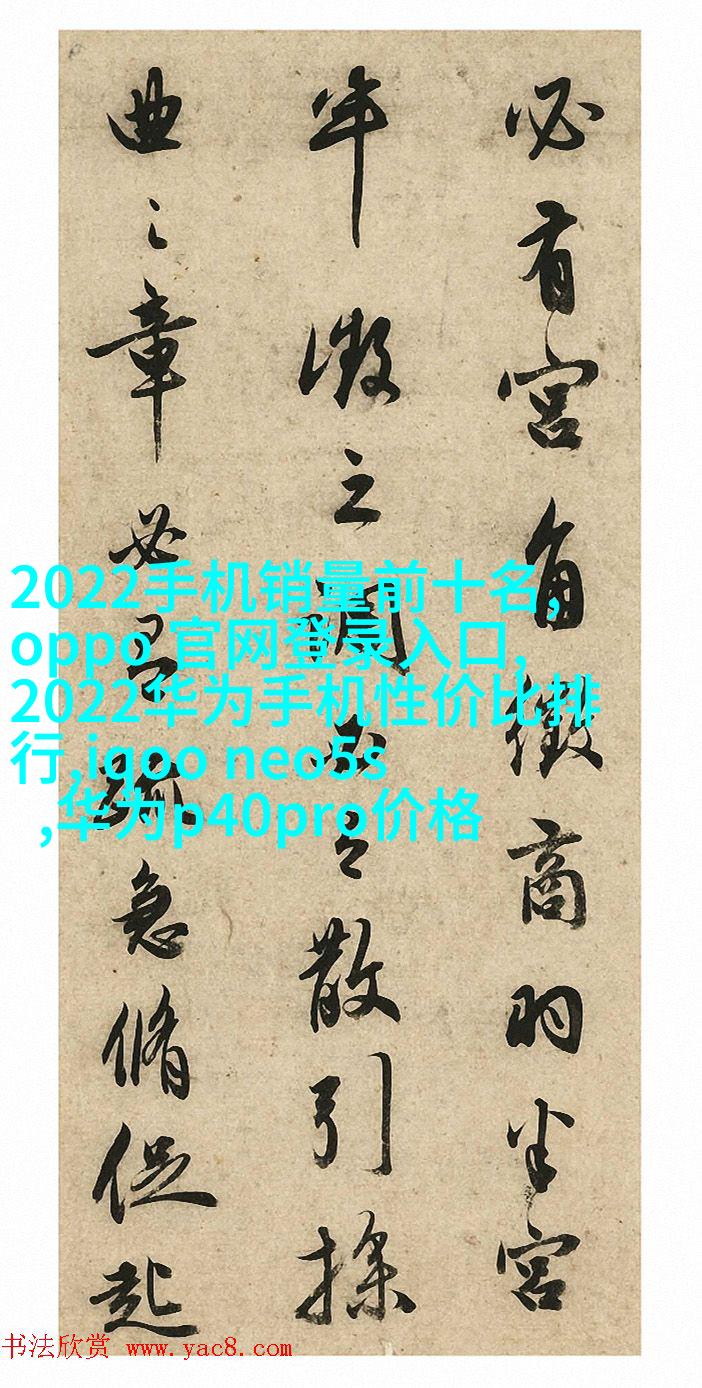 必有宮角徵商羽半宮
半徵之調必言散引操
曲〻章必急脩促起
2022手机销量前十名,
oppo 官网登录入口,
2022华为手机性价比排
行,iqoo neo5s
,华为p40pro价格
书法欣赏 www.yac8.com